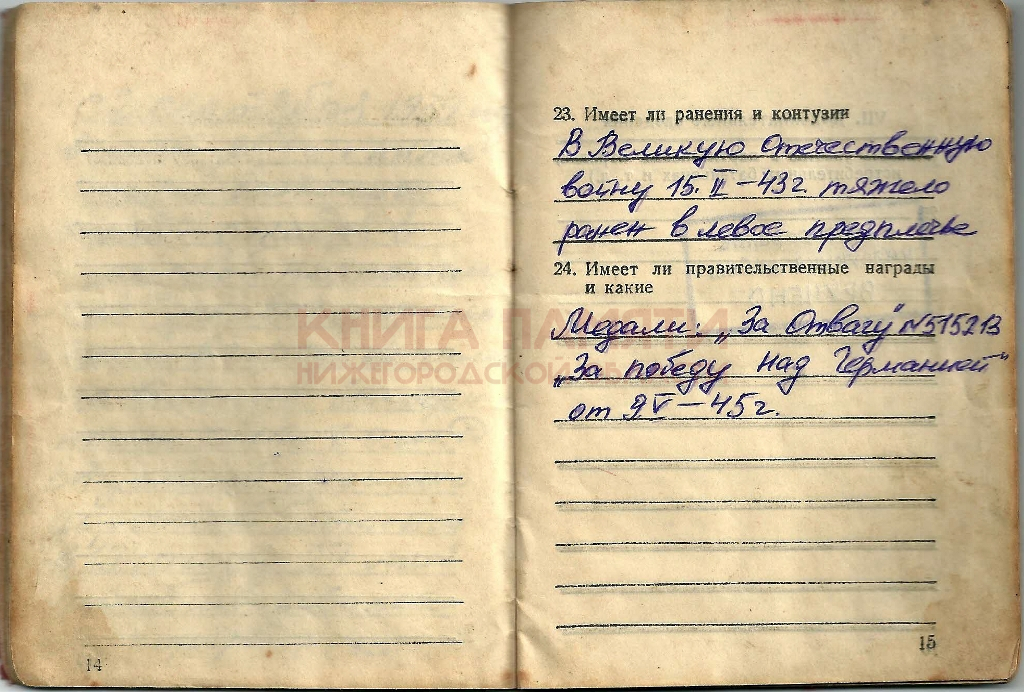 14
23. Имеет ли ранения и контузии
В Великую Отечественную
войну 15. II – 43 г. тяжело
ранен в левое предплечье
24. Имеет ли правительственные награды
и какие
Медали: „За Отвагу" N515213
„За победу над Германией"
от 9 V – 45 г.
15
КНИГА ПАМЯТИ
НИЖЕГОРОДСКОЙ